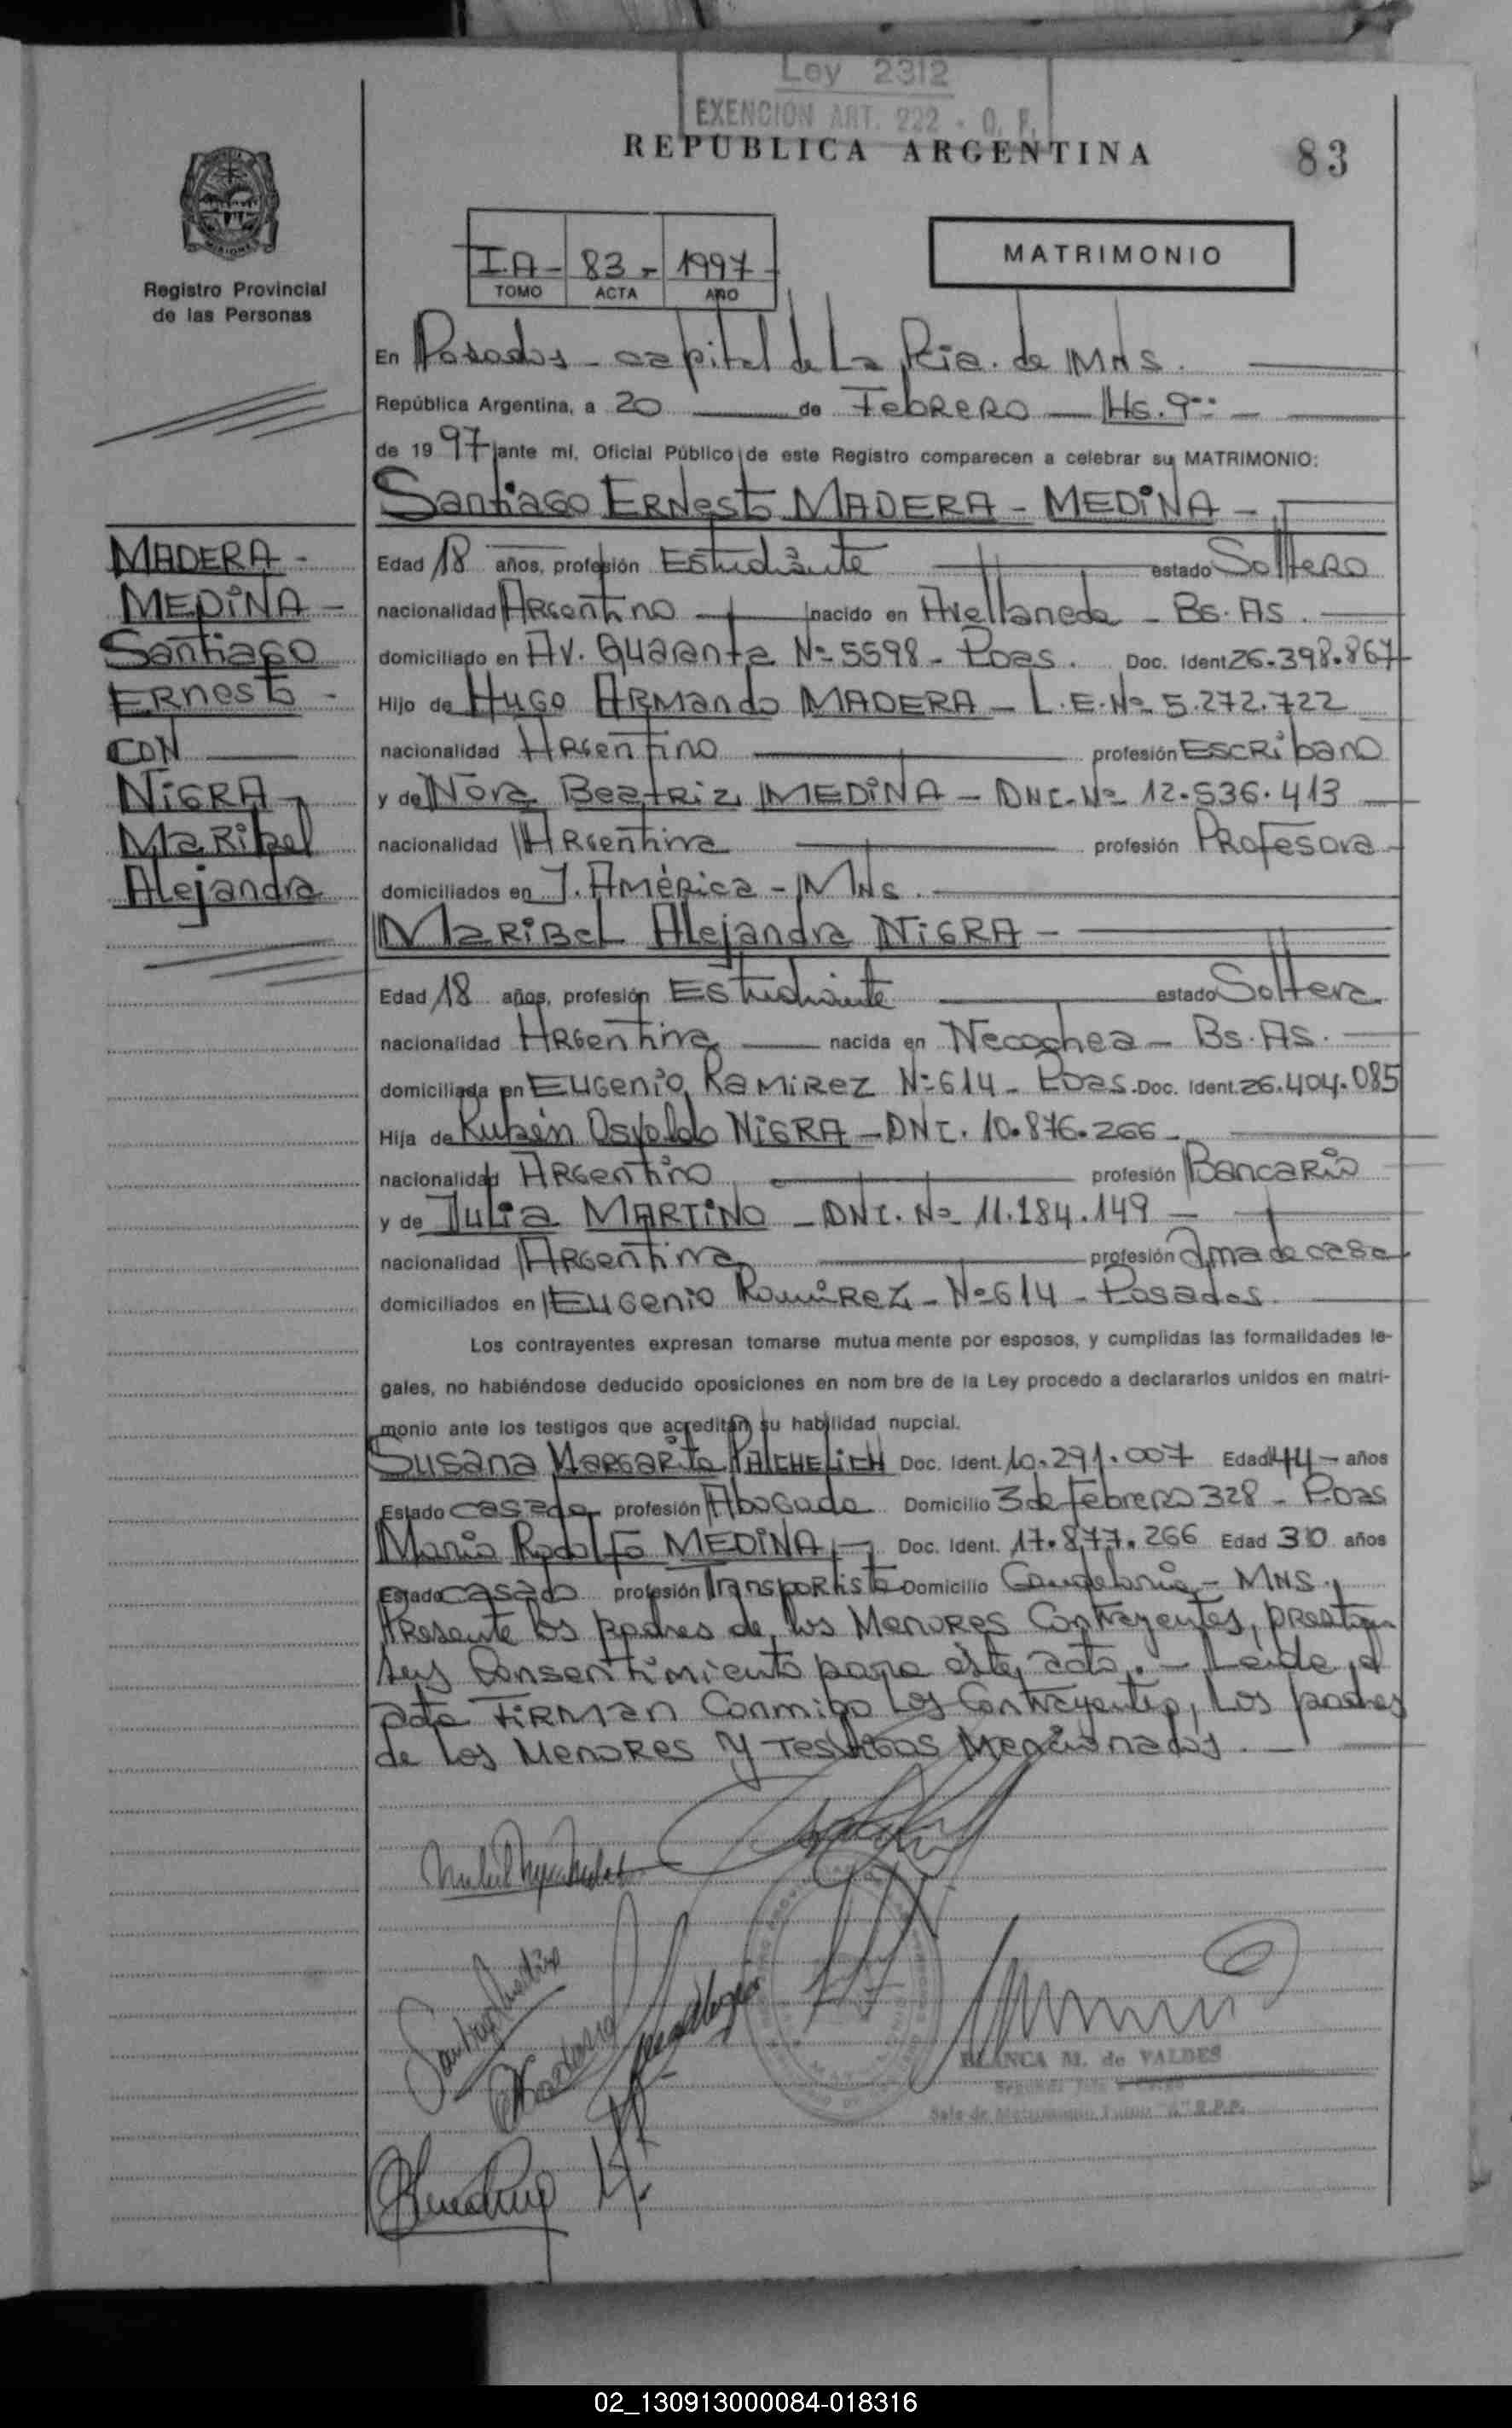 Ley 2312
EXENCION ART. 222 - O. F.
REPUBLICA ARGENTINA
83
MISIONES
Registro Provincial
de las Personas
I.A - 83 - 1997 -
TOMO ACTA AÑO
MATRIMONIO
En Posadas - capital de La Pcia. de MNS.
República Argentina, a 20 de FebRERO - Hs. 9 -
de 1997 ante mí, Oficial Público de este Registro comparecen a celebrar su MATRIMONIO:
Santiago ERNesto MADERA - MEDINA -
MADERA -
MEDINA -
Santiago
ERNesto -
CON
NIGRA -
MaRibel
Alejandra
Edad 18 años, profesión Estudiante estado SolteRO
nacionalidad ARgentino nacido en Avellaneda - Bs. AS.
domiciliado en AV. Quaranta Nº 5598 - Pdas. Doc. Ident 26.398.867
Hijo de Hugo ARMando MADERA - L.E. Nº 5.272.722
nacionalidad ARgentino profesión EscRibano
y de Nora BeatRiz MEDINA - DNI. Nº 12.536.413
nacionalidad ARgentina profesión PRofesora
domiciliados en J. América - MNS.
MaRibel Alejandra NIGRA -
Edad 18 años, profesión Estudiante estado Soltera
nacionalidad ARgentina nacida en Necochea - Bs. AS.
domiciliada en Eugenio RaMiRez Nº 614 - Pdas. Doc. Ident. 26.404.085
Hija de Rubén Osvaldo NIGRA - DNI. 10.876.266 -
nacionalidad ARgentino profesión BancaRio
y de Julia MARTINO - DNI. Nº 11.184.149 -
nacionalidad ARgentina profesión Ama de casa
domiciliados en Eugenio RamiRez - Nº 614 - Posadas.
Los contrayentes expresan tomarse mutua mente por esposos, y cumplidas las formalidades le-
gales, no habiéndose deducido oposiciones en nom bre de la Ley procedo a declararlos unidos en matri-
monio ante los testigos que acreditan su habilidad nupcial.
Susana MaRgaRita Doc. Ident. 10.291.007 Edad 44 - años
Estado casada profesión Abogada Domicilio 3 de febrero 328 - Pdas
Mario Rodolfo MEDINA - Doc. Ident. 17.877.266 Edad 30 años
Estado casado profesión TranspoRtista Domicilio Candelaria - MNS.
PResente los padres de los MenoRes ContRayentes, prestan
su consentimiento para este acto. - Leída el
acta FiRMan Conmigo Los ContRayentes, Los padres
de Los MenoRes y Testigos Mencionados. -
BLANCA M. de VALDES
Sala de Matrimonio Turno "A" R.P.P.
02_130913000084-018316